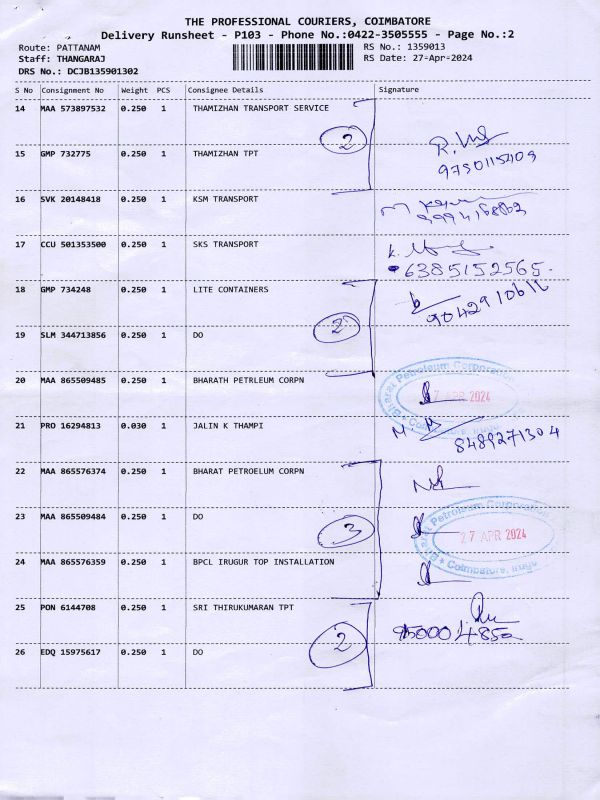 THE PROFESSIONAL COURIERS, COIMBATORE
Delivery Runsheet - P103 - Phone No.:0422-3505555 - Page No.:2
Route: PATTANAM
RS No.: 1359013
Staff: THANGARAJ
RS Date: 27-Apr-2024
DRS No.: DCJB135901302
S No Consignment No Weight PCS Consignee Details Signature
14 MAA 573897532 0.250 1 THAMIZHAN TRANSPORT SERVICE
2
15 GMP 732775 0.250 1 THAMIZHAN TPT
9750115409
16 SVK 20148418 0.250 1 KSM TRANSPORT
17 CCU 501353500 0.250 1 SKS TRANSPORT
6385152565
18 GMP 734248 0.250 1 LITE CONTAINERS
2
19 SLM 344713856 0.250 1 DO
20 MAA 865509485 0.250 1 BHARATH PETRLEUM CORPN
Bharat Petroleum Corporation
27 APR 2024
Coimbatore, Irugur
21 PRO 16294813 0.030 1 JALIN K THAMPI
8489271304
22 MAA 865576374 0.250 1 BHARAT PETROELUM CORPN
23 MAA 865509484 0.250 1 DO
3
Bharat Petroleum Corporation
27 APR 2024
Coimbatore, Irugur
24 MAA 865576359 0.250 1 BPCL IRUGUR TOP INSTALLATION
25 PON 6144708 0.250 1 SRI THIRUKUMARAN TPT
2
26 EDQ 15975617 0.250 1 DO